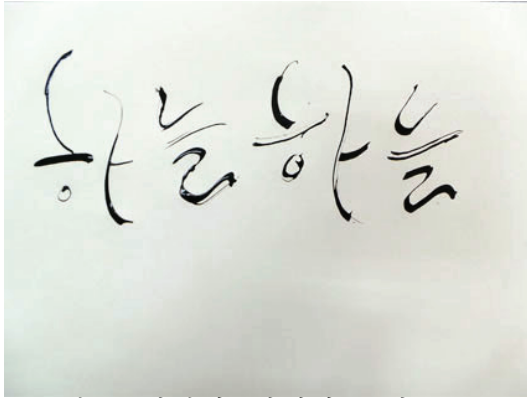 하늘하늘